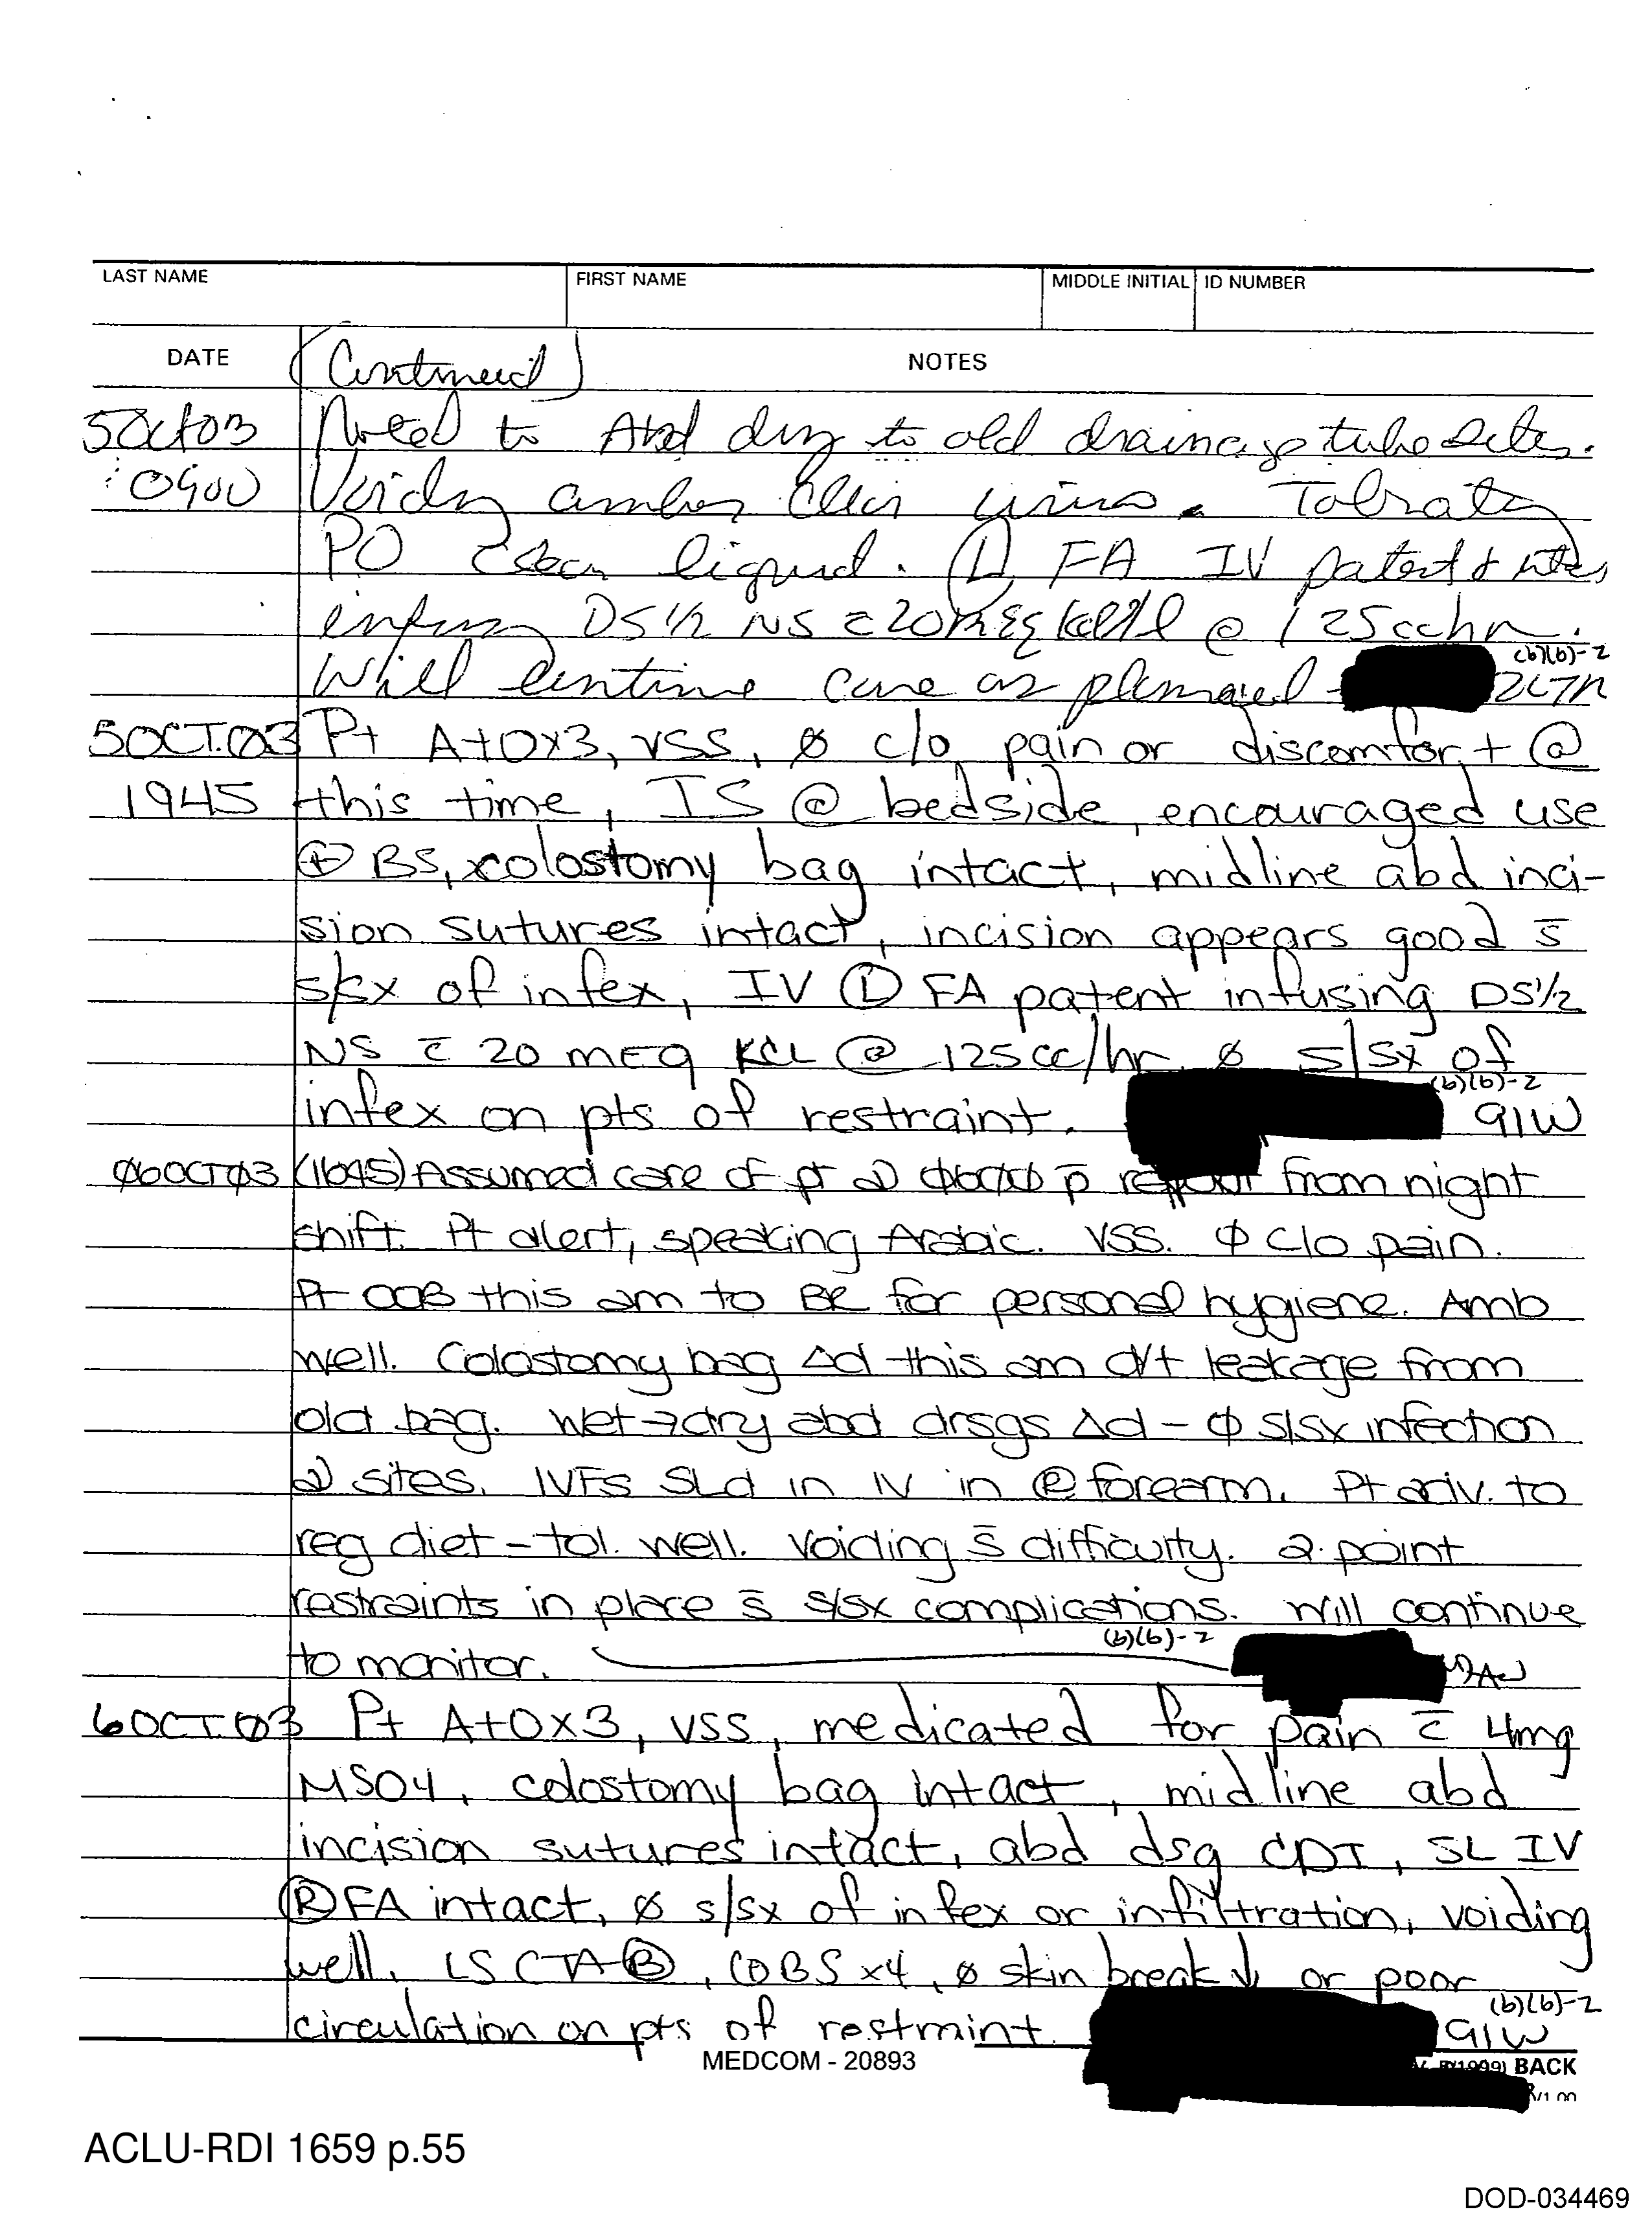 LAST NAME FIRST NAME MIDDLE INITIAL ID NUMBER
DATE (Continued) NOTES
5Oct03 Noted to Abd dsg to old drainage tube sites.
0900 Voidg amber clear urine. Toleratg
PO clear liquid. (L) FA IV patent &
infusg D5 1/2 NS c̄ 20 mEq KCl/l @ 125cc hr.
(b)(6)-2
Will continue care as planned 2LTN
5OCT.03 Pt A+Ox3, VSS, ø c/o pain or discomfort @
1945 this time, IS @ bedside, encouraged use
(+) BS, colostomy bag intact, midline abd inci-
sion sutures intact, incision appears good s̄
s/sx of infex, IV (L) FA patent infusing D5 1/2
NS c̄ 20 meq KCL @ 125cc/hr ø s/sx of
(b)(6)-2
infex on pts of restraint. 91W
06OCT03 (1645) Assumed care of pt @ p̄ report from night
shift. Pt alert, speaking Arabic. VSS. ø c/o pain.
Pt OOB this am to BR for personal hygiene. Amb
well. Colostomy bag Δd this am d/t leakage from
old bag. Wet→dry abd drsgs Δd - ø s/sx infection
@ sites. IVFs SLd in IV in (R) forearm. Pt adv. to
reg diet - tol. well. Voiding s̄ difficulty. 2 point
restraints in place s̄ s/sx complications. Will continue
(b)(6)-2
to monitor.
6OCT.03 Pt A+Ox3, VSS, medicated for pain c̄ 4mg
MSO4, colostomy bag intact, midline abd
incision sutures intact, abd dsg CDI, SL IV
(R) FA intact, ø s/sx of infex or infiltration, voiding
well, LS CTA (B), (+) BS x4, ø skin break↓ or poor
(b)(6)-2
circulation on pts of restraint. 91W
MEDCOM - 20893
(1999) BACK
ACLU-RDI 1659 p.55
DOD-034469